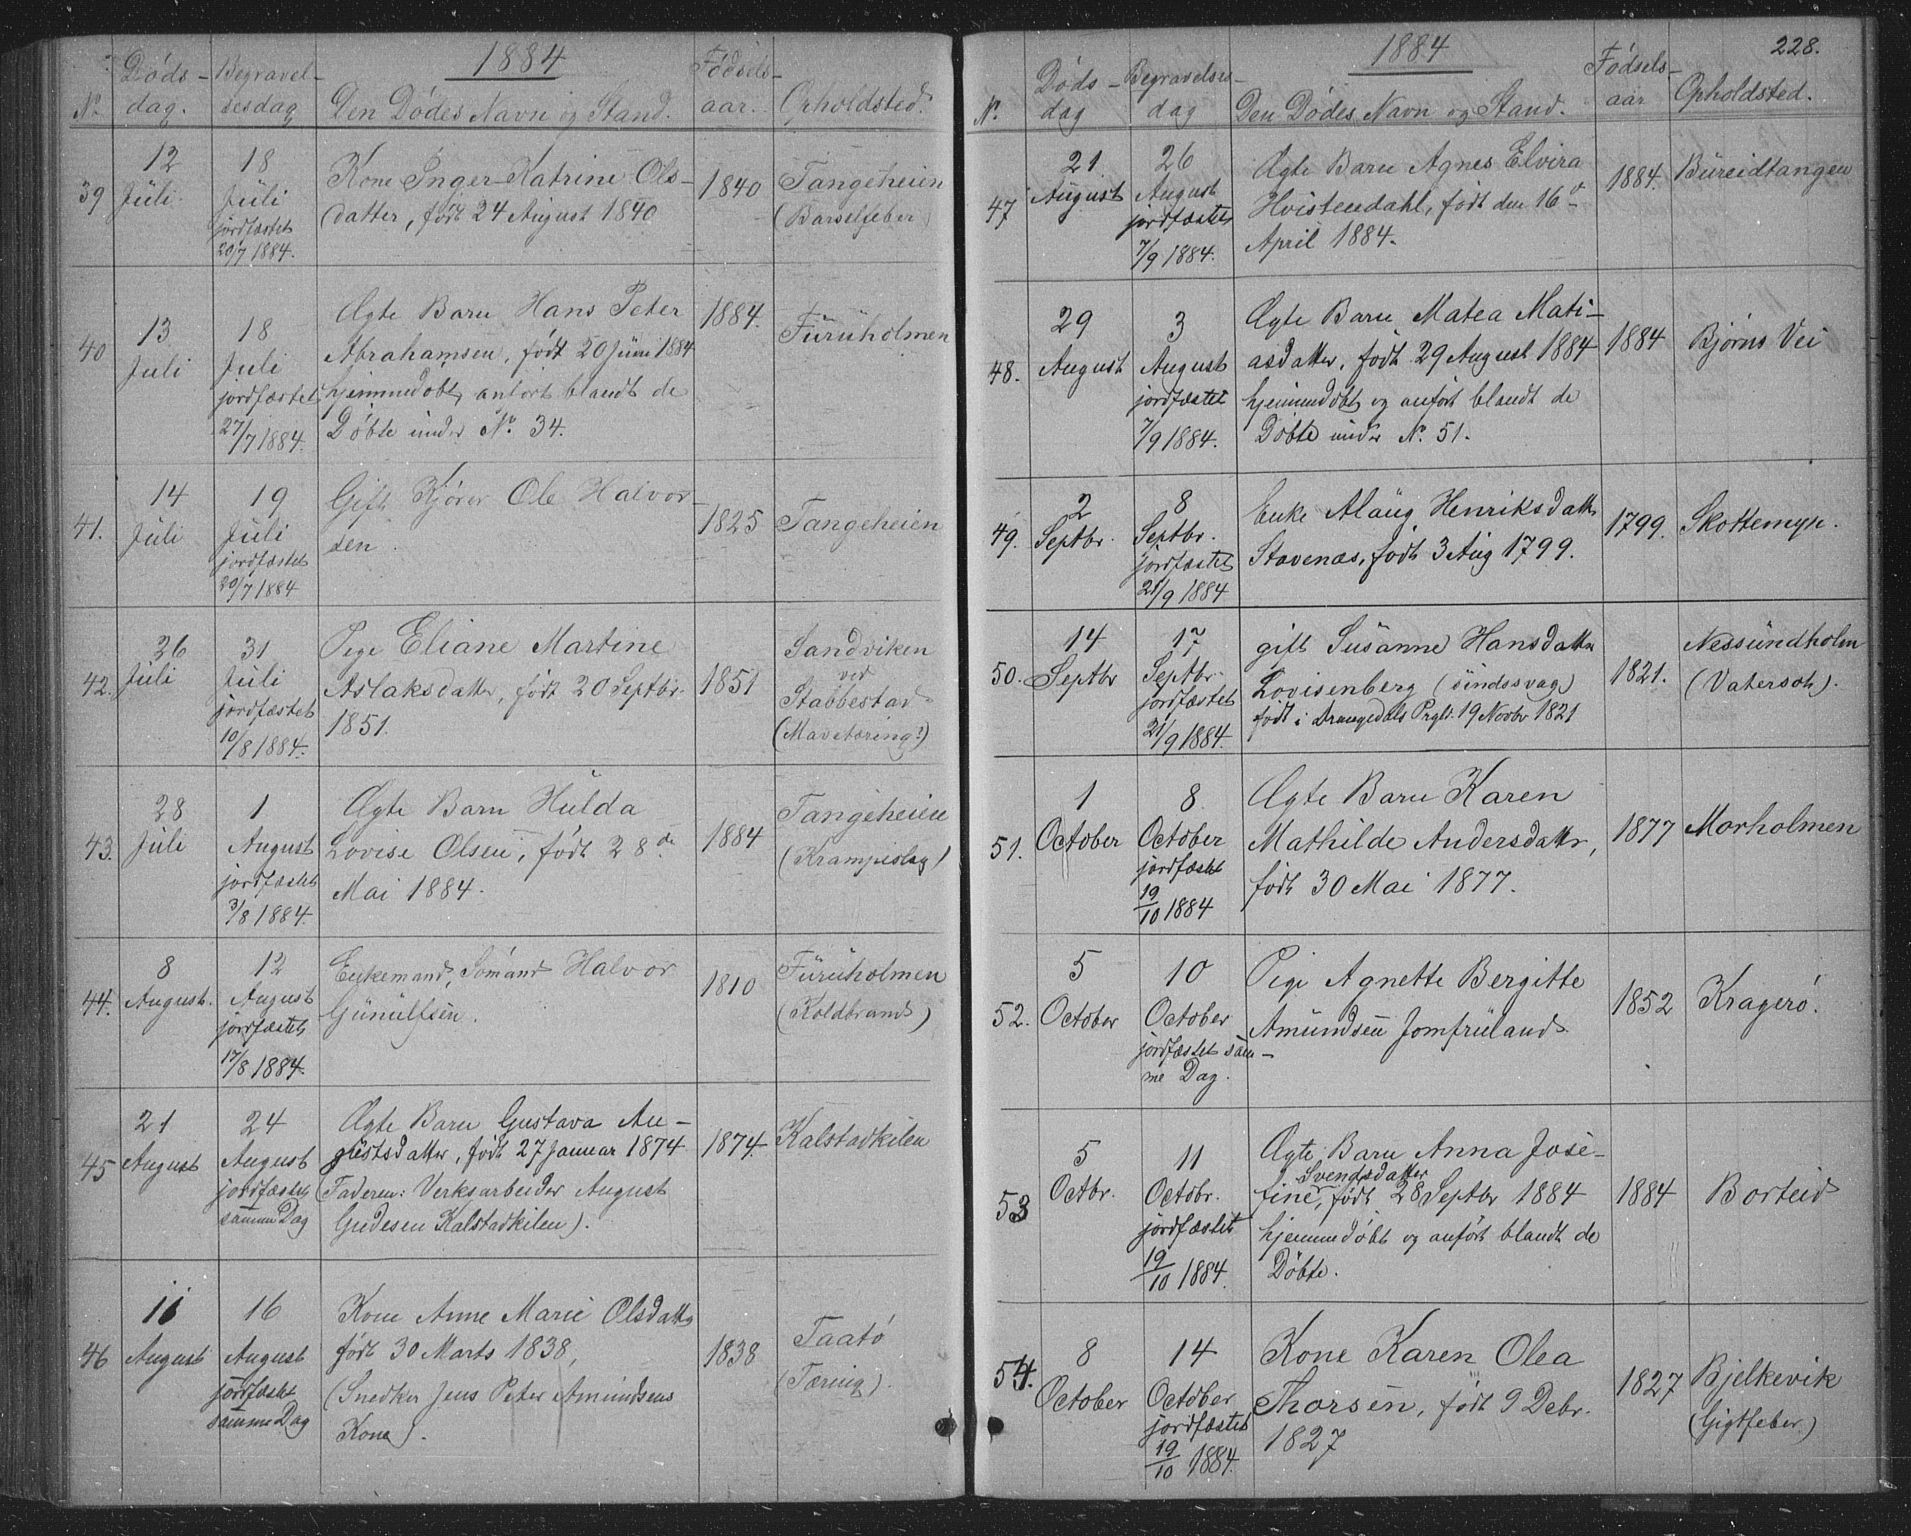 1884
No
Døds-
dag.
Begravel-
sesdag
Den Dødes Navn og Stand.
Fødsels-
aar.
Opholdsted.
39
12
Juli
18
Juli
jordfæstet
20/7 1884.
Kone Inger Katrine Ols-
datter, født 24 August 1840
1840
Tangeheien
(Barselfeber)
40
13
Juli
18
Juli
jordfæstet
27/7 1884.
Ægte Barn Hans Peter
Abrahamsen, født 20 Juni 1884
hjemmedøbt, anført blandt de
Døbte under No 34.
1884.
Furuholmen
41.
14
Juli
19
Juli
jordfæstet
20/7 1884
Gift Kjører Ole Halvor-
sen.
1825
Tangeheien
42.
26
Juli
31
Juli
jordfæstet
10/8 1884.
Pige Eliane Martine
Aslaksdatter, født 20 Septbr.
1851.
1851
Sandviken
ved
Stabbestad
(Mavetæring?)
43.
28
Juli
1
August
jordfæstet
3/8 1884.
Ægte Barn Hulda
Lovise Olsen, født 28de
Mai 1884.
1884
Tangeheien
(Krampeslag)
44.
8
August.
12
August
jordfæstet
17/8 1884.
Enkemand, Sømand Halvor
Gunulfsen.
1810
Furuholmen
(Koldbrand)
45
21
August
24
August
jordfæstet
samme Dag
Ægte Barn Gustava Au-
gustsdatter, født 27 Januar 1874
(Faderen: Verksarbeider August
Gudesen Kalstadkilen).
1874
Kalstadkilen
46
11
August
16
August
jordfæstet
samme Dag
Kone Anne Marie Olsdatter
født 30 Marts 1838,
(Snedker Jens Peter Amundsens
Kone).
1838
Taatø
(Tæring).
1884
228.
No.
Døds-
dag
Begravelses-
dag
Den Dødes Navn og Stand.
Fødsels-
aar
Opholdsted.
47
21
August
26
August
jordfæstet
7/9 1884.
Ægte Barn Agnes Elvira
Hvistendahl, født den 16de
April 1884.
1884.
Bureidtangen
48.
29
August
3
August
jordfæstet
7/9 1884.
Ægte Barn Matea Mati-
asdatter, født 29 August 1884
hjemmedøbt og anført blandt de
Døbte under No. 51.
1884
Bjørns Vei
49.
2
Septbr.
8
Septbr.
jordfæstet
21/9 1884
Enke Alaug Henriksdatter
Stavenæs, født 3 Aug 1799.
1799.
Skottemyr.
50.
14
Septbr
17
Septbr.
jordfæstet
21/9 1884.
gift Susanne Hansdatter
Lovisenberg (sindssvag)
født i Drangedals Prgld. 19 Novbr 1821
1821.
Nessundholm
(Vatersot).
51.
1
October
8
October
jordfæstet
19/10 1884
Ægte Barn Karen
Mathilde Andersdatter,
født 30 Mai 1877.
1877
Morholmen
52.
5
October
10
October
jordfæstet sam-
me Dag.
Pige Agnette Bergitte
Amundsen Jomfruland
1852
Kragerø.
53
5
Octbr.
11
Octobr.
jordfæstet
19/10 1884.
Ægte Barn Anna Jose-
Svendsdatter
fine, født 28 Septbr 1884
hjemmedøbt og anført blandt de
Døbte.
1884
Borteid
54.
8
October
14
October
jordfæstet
19/10 1884.
Kone Karen Olea
Thorsen, født 9 Debr.
1827
1827
Bjelkevik
(Gigtfeber)